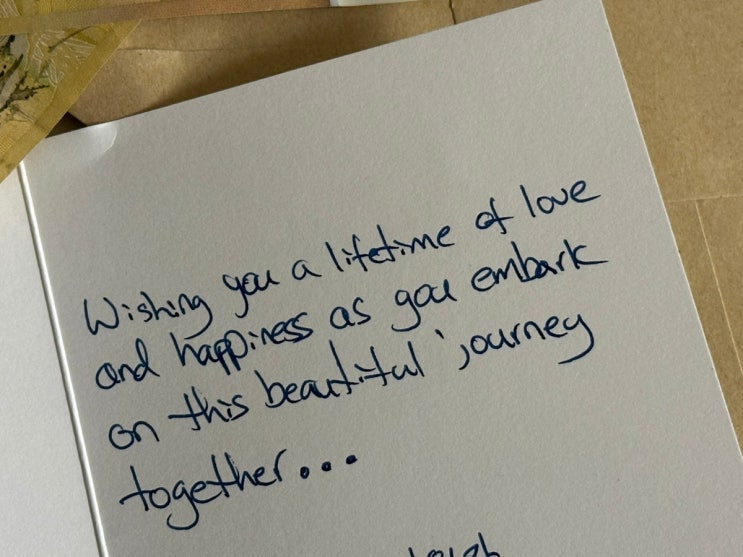 Wishing you a lifetime of love
and happiness as you embark
on this beautiful journey
together...